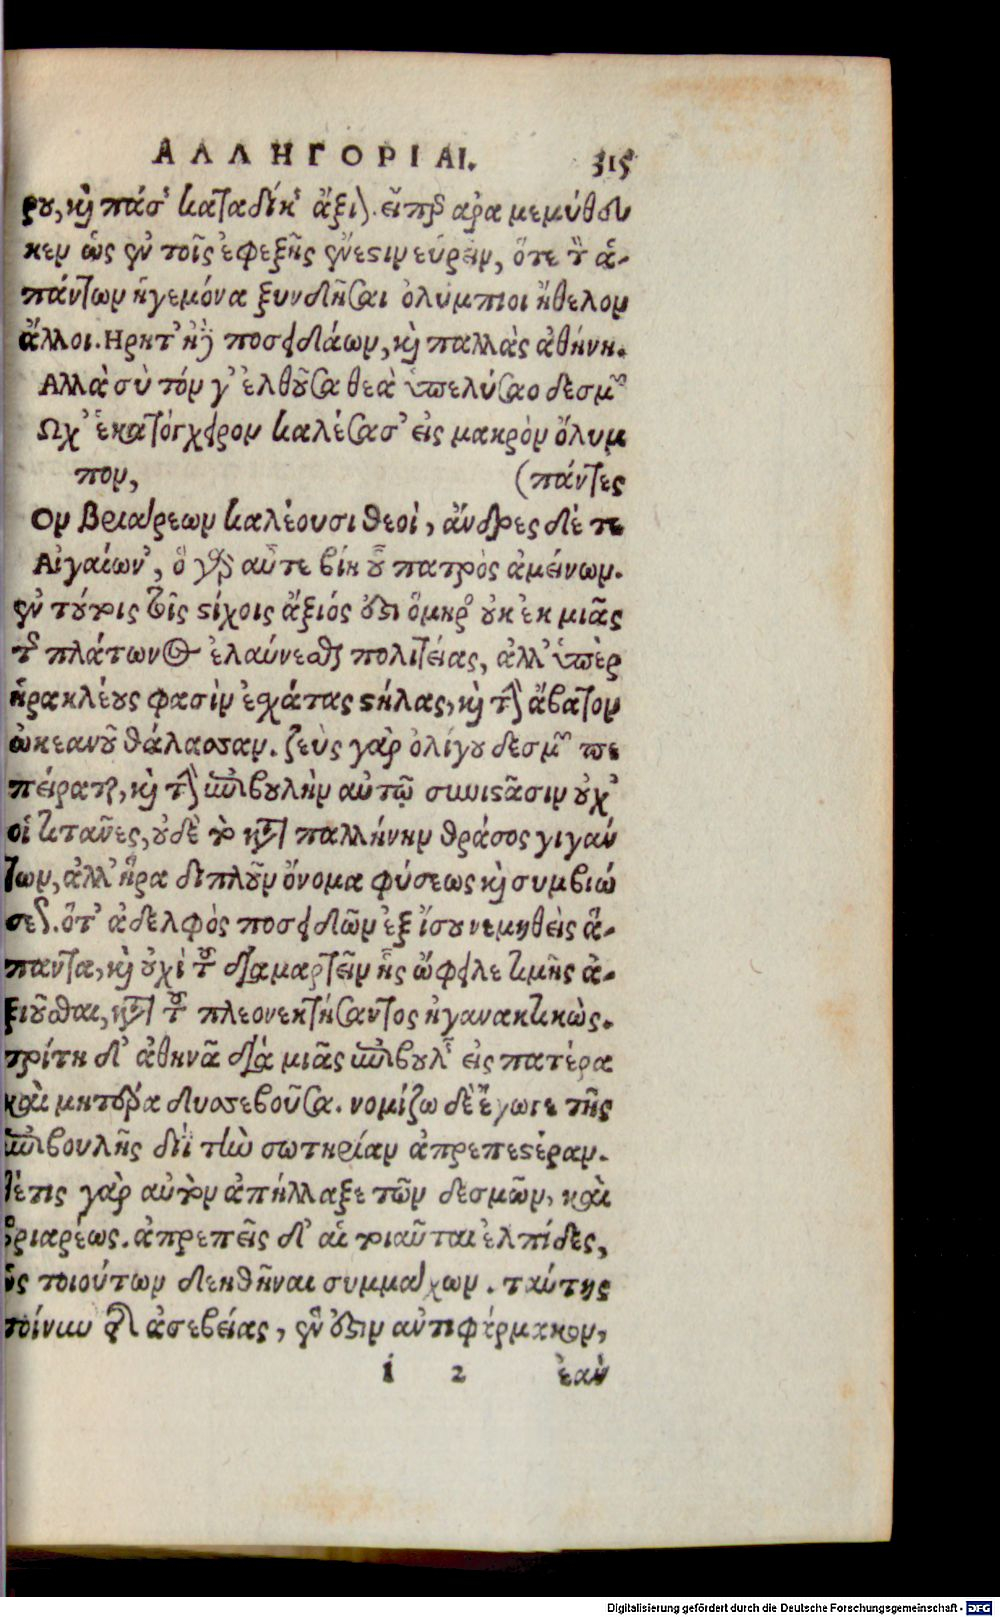 ΑΛΛΗΓΟΡΙΑΙ. 315
ρου, καὶ πάσης καταδίκης ἄξιον. εἴπερ ἄρα μεμύθευ
κεν ὡς ἐν τοῖς ἐφεξῆς ἔνεστιν εὑρεῖν, ὅτε τὸν ἁ-
πάντων ἡγεμόνα ξυνδῆσαι ὀλύμπιοι ἤθελον
ἄλλοι. Ηρητ’ ἠδὲ ποσειδάων, καὶ παλλὰς ἀθήνη.
Αλλὰ σὺ τόν γ’ ἐλθοῦσα θεὰ ὑπελύσαο δεσμῶν
Ωχ’ ἑκατόγχειρον καλέσασ’ εἰς μακρὸν ὄλυμ
πον, (πάντες
Ον βριάρεων καλέουσι θεοί, ἄνδρες δέ τε
Αἰγαίων’, ὁ γὰρ αὖτε βίη οὗ πατρὸς ἀμείνων.
ἐν τούτοις τοῖς στίχοις ἄξιός ἐστι ὅμηρος οὐκ ἐκ μιᾶς
τῆς πλάτωνος ἐλαύνεσθαι πολιτείας, ἀλλ’ ὑπὲρ
ἡρακλέους φασὶν ἐσχάτας στήλας, καὶ τὴν ἄβατον
ὠκεανοῦ θάλασσαν. ζεὺς γὰρ ὀλίγου δεσμῶν πε
πείραται, καὶ τὴν ἐπιβουλὴν αὐτῷ συνιστᾶσιν οὐχ
οἱ τιτᾶνες, οὐδὲ τὸ κατὰ παλλήνην θράσος γιγάν
των, ἀλλ’ ἥρα διπλοῦν ὄνομα φύσεως καὶ συμβιώ
σεως. ὅτ’ ἀδελφὸς ποσειδῶν ἐξ ἴσου νεμηθεὶς ἅ-
παντα, καὶ οὐχὶ τοῦ διαμαρτεῖν ἧς ὤφειλε τιμῆς ἀ-
ξιοῦσθαι, κατὰ τοῦ πλεονεκτήσαντος ἠγανακτικὼς.
τρίτη δ’ ἀθηνᾶ διὰ μιᾶς ἐπιβουλῆς εἰς πατέρα
καὶ μητέρα δυσσεβοῦσα. νομίζω δὲ ἔγωγε τῆς
ἐπιβουλῆς διῒ τὴν σωτηρίαν ἀπρεπεστέραν.
θέτις γὰρ αὐτὸν ἀπήλλαξε τῶν δεσμῶν, καὶ
βριαρέως. ἀπρεπεῖς δ’ αἱ τοιαῦται ἐλπίδες,
ὡς τοιούτων δεηθῆναι συμμάχων. ταύτης
τοίνυν τῆς ἀσεβείας, ἕν ἐστιν ἀντιφάρμακον,
i 2 ἐὰν
Digitalisierung gefördert durch die Deutsche Forschungsgemeinschaft - DFG